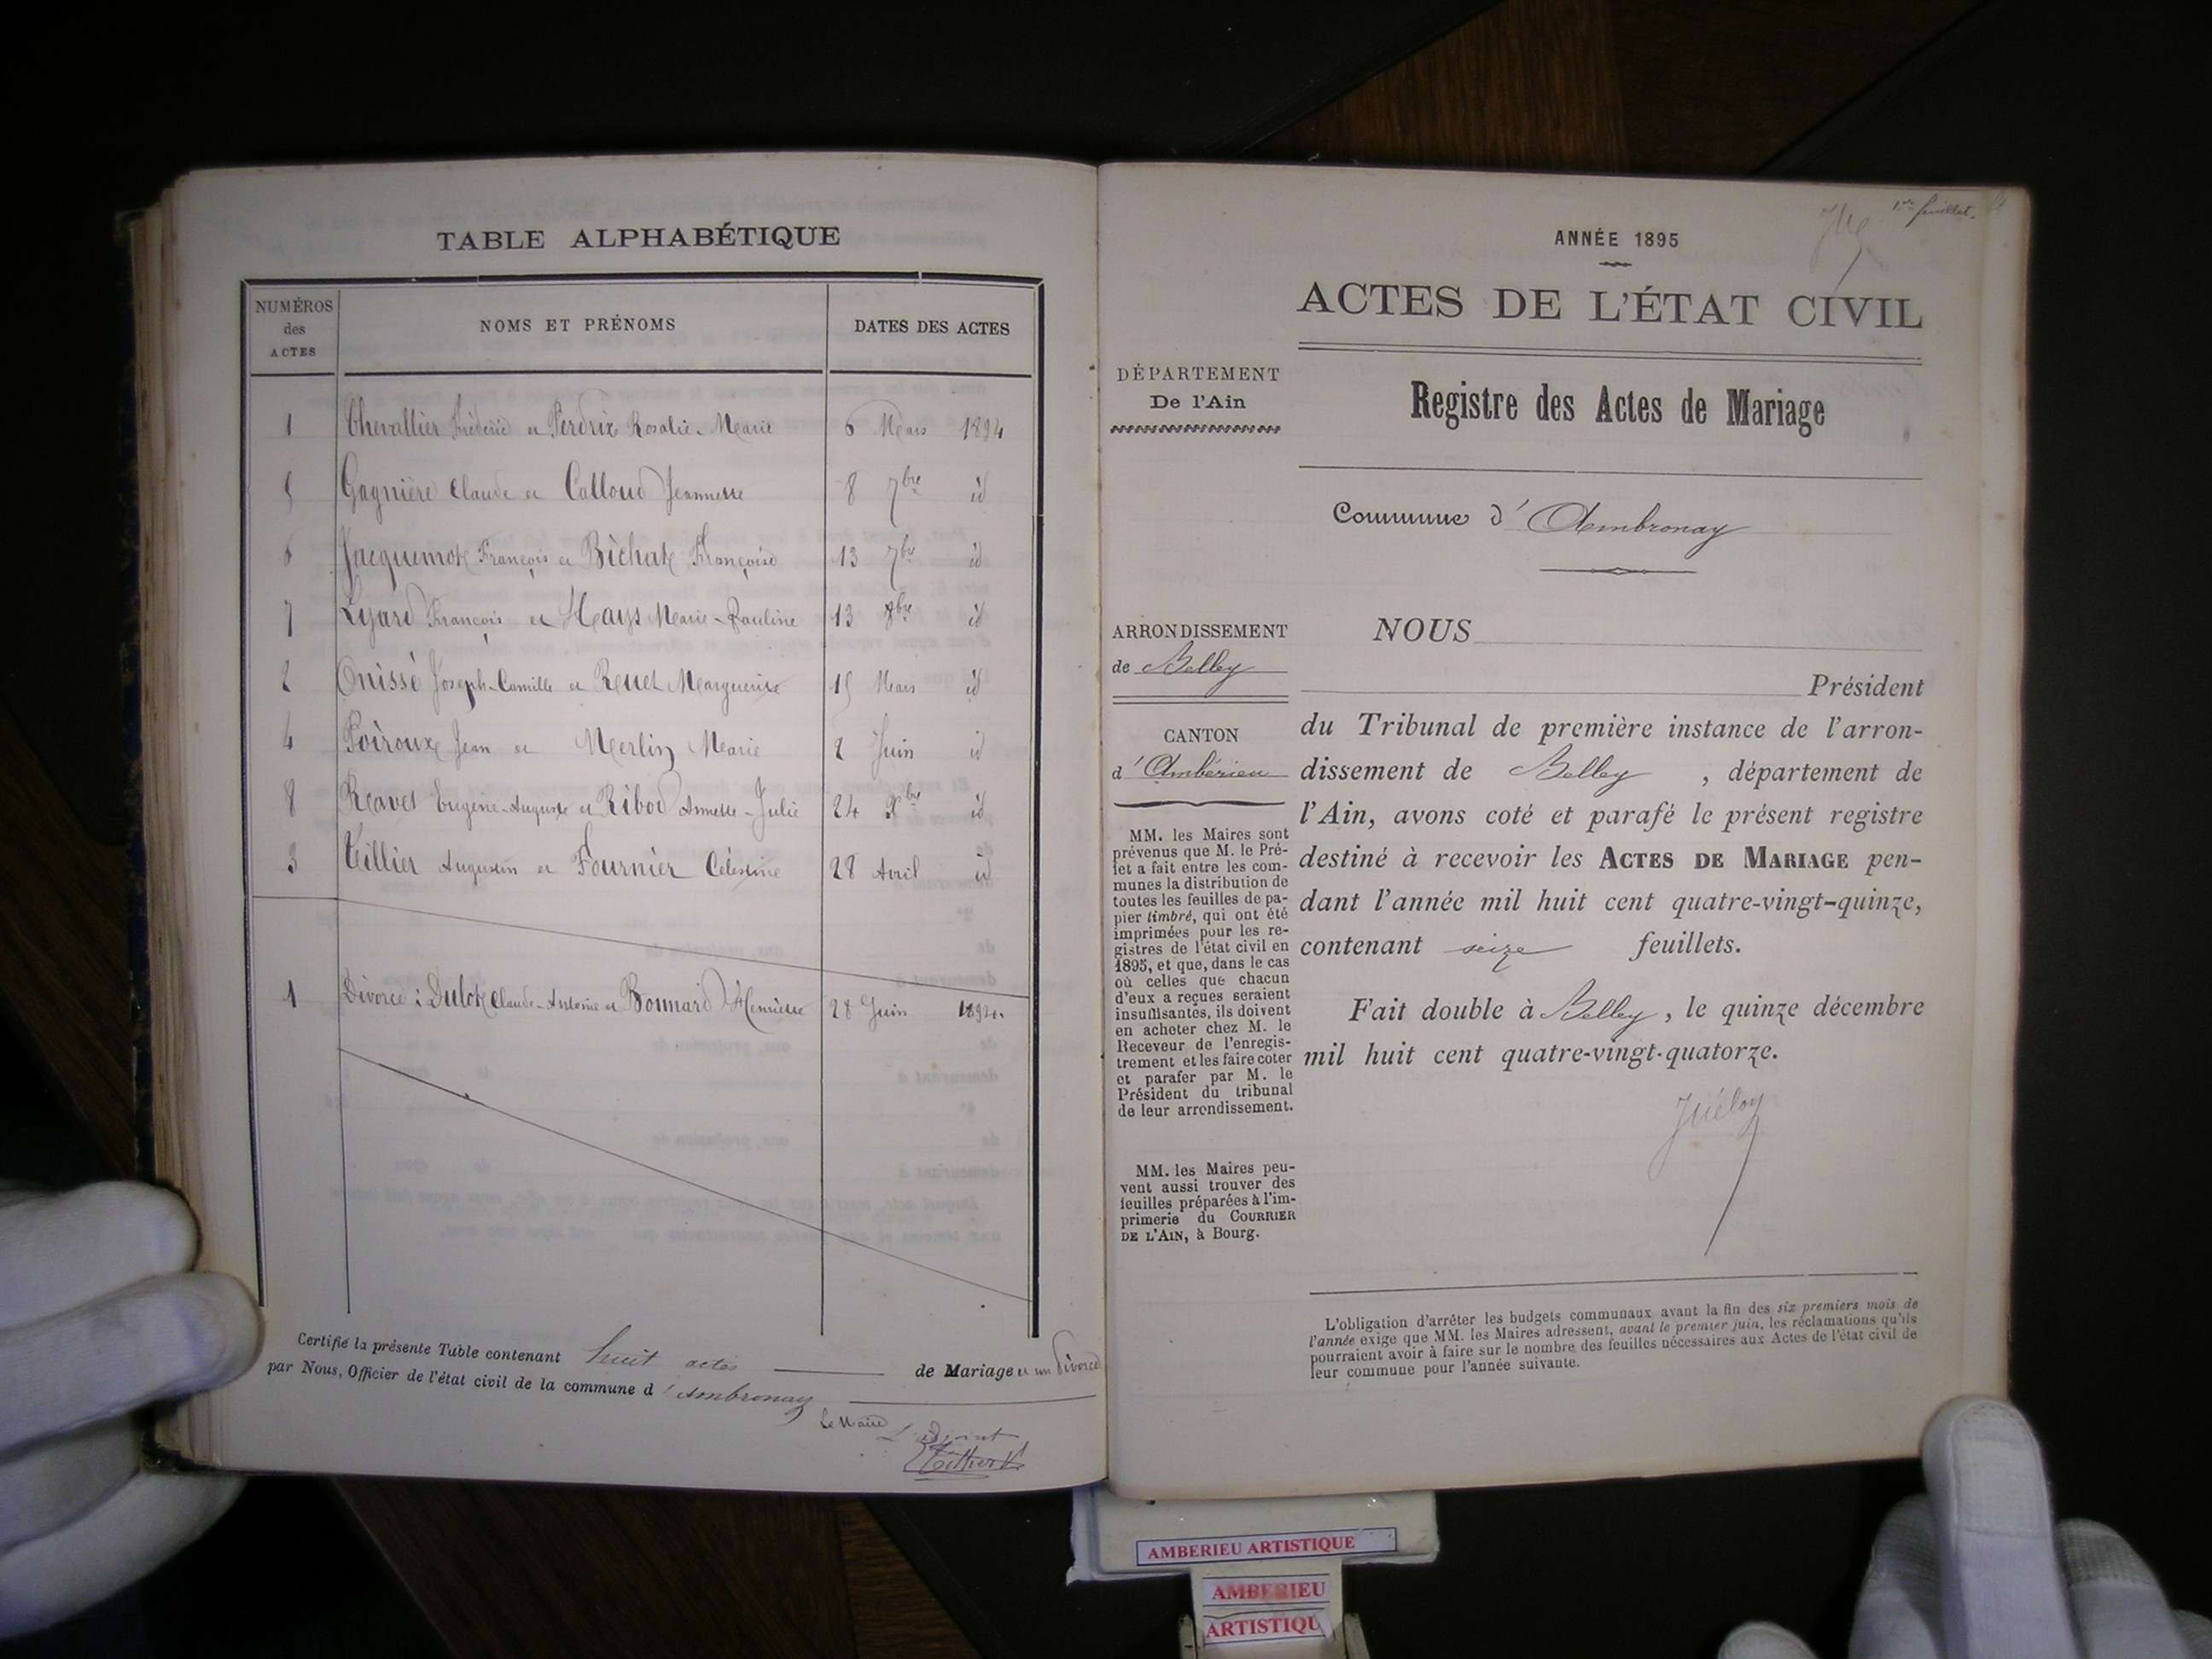 TABLE ALPHABÉTIQUE
NUMÉROS des ACTES
NOMS ET PRÉNOMS
DATES DES ACTES
1 Chevallier Fréderic et Perdrix Rosalie-Marie 6 Mars 1894
5 Gagnière Claude et Calloud Jeannette 8 7bre id
6 Jacquemot François et Bichat Françoise 13 7bre id
7 Lyard François et Hays Marie-Pauline 13 8bre id
2 Onissé Joseph-Camille et Revel Marguerite 15 Mars id
4 Poiroux Jean et Merlin Marie 2 Juin id
8 Ravet Eugène-Auguste et Ribod Annette-Julie 24 bre id
3 Tillier Augustin et Fournier Célestine 28 Avril id
1 Divorce : Dulot Claude-Antoine et Bonnard Henriette 28 Juin 1894.
Certifié la présente Table contenant huit actes de Mariage et un divorce
par Nous, Officier de l'état civil de la commune d'Ambronay
Le Maire
L'adjoint
1er feuillet.
ANNÉE 1895
ACTES DE L'ÉTAT CIVIL
DÉPARTEMENT
De l'Ain
Registre des Actes de Mariage
Commune d'Ambronay
ARRONDISSEMENT
de Belley
CANTON
d'Ambérieu
MM. les Maires sont
prévenus que M. le Pré-
fet a fait entre les com-
munes la distribution de
toutes les feuilles de pa-
pier timbré, qui ont été
imprimées pour les re-
gistres de l'état civil en
1895, et que, dans le cas
où celles que chacun
d'eux a reçues seraient
insuffisantes, ils doivent
en acheter chez M. le
Receveur de l'enregis-
trement et les faire coter
et parafer par M. le
Président du tribunal
de leur arrondissement.
MM. les Maires peu-
vent aussi trouver des
feuilles préparées à l'im-
primerie du COURRIER
DE L'AIN, à Bourg.
NOUS
Président
du Tribunal de première instance de l'arron-
dissement de Belley , département de
l'Ain, avons coté et parafé le présent registre
destiné à recevoir les ACTES DE MARIAGE pen-
dant l'année mil huit cent quatre-vingt-quinze,
contenant seize feuillets.
Fait double à Belley, le quinze décembre
mil huit cent quatre-vingt-quatorze.
L'obligation d'arrêter les budgets communaux avant la fin des six premiers mois de
l'année exige que MM. les Maires adressent, avant le premier juin, les réclamations qu'ils
pourraient avoir à faire sur le nombre des feuilles nécessaires aux Actes de l'état civil de
leur commune pour l'année suivante.
AMBERIEU ARTISTIQUE
AMBERIEU
ARTISTIQU